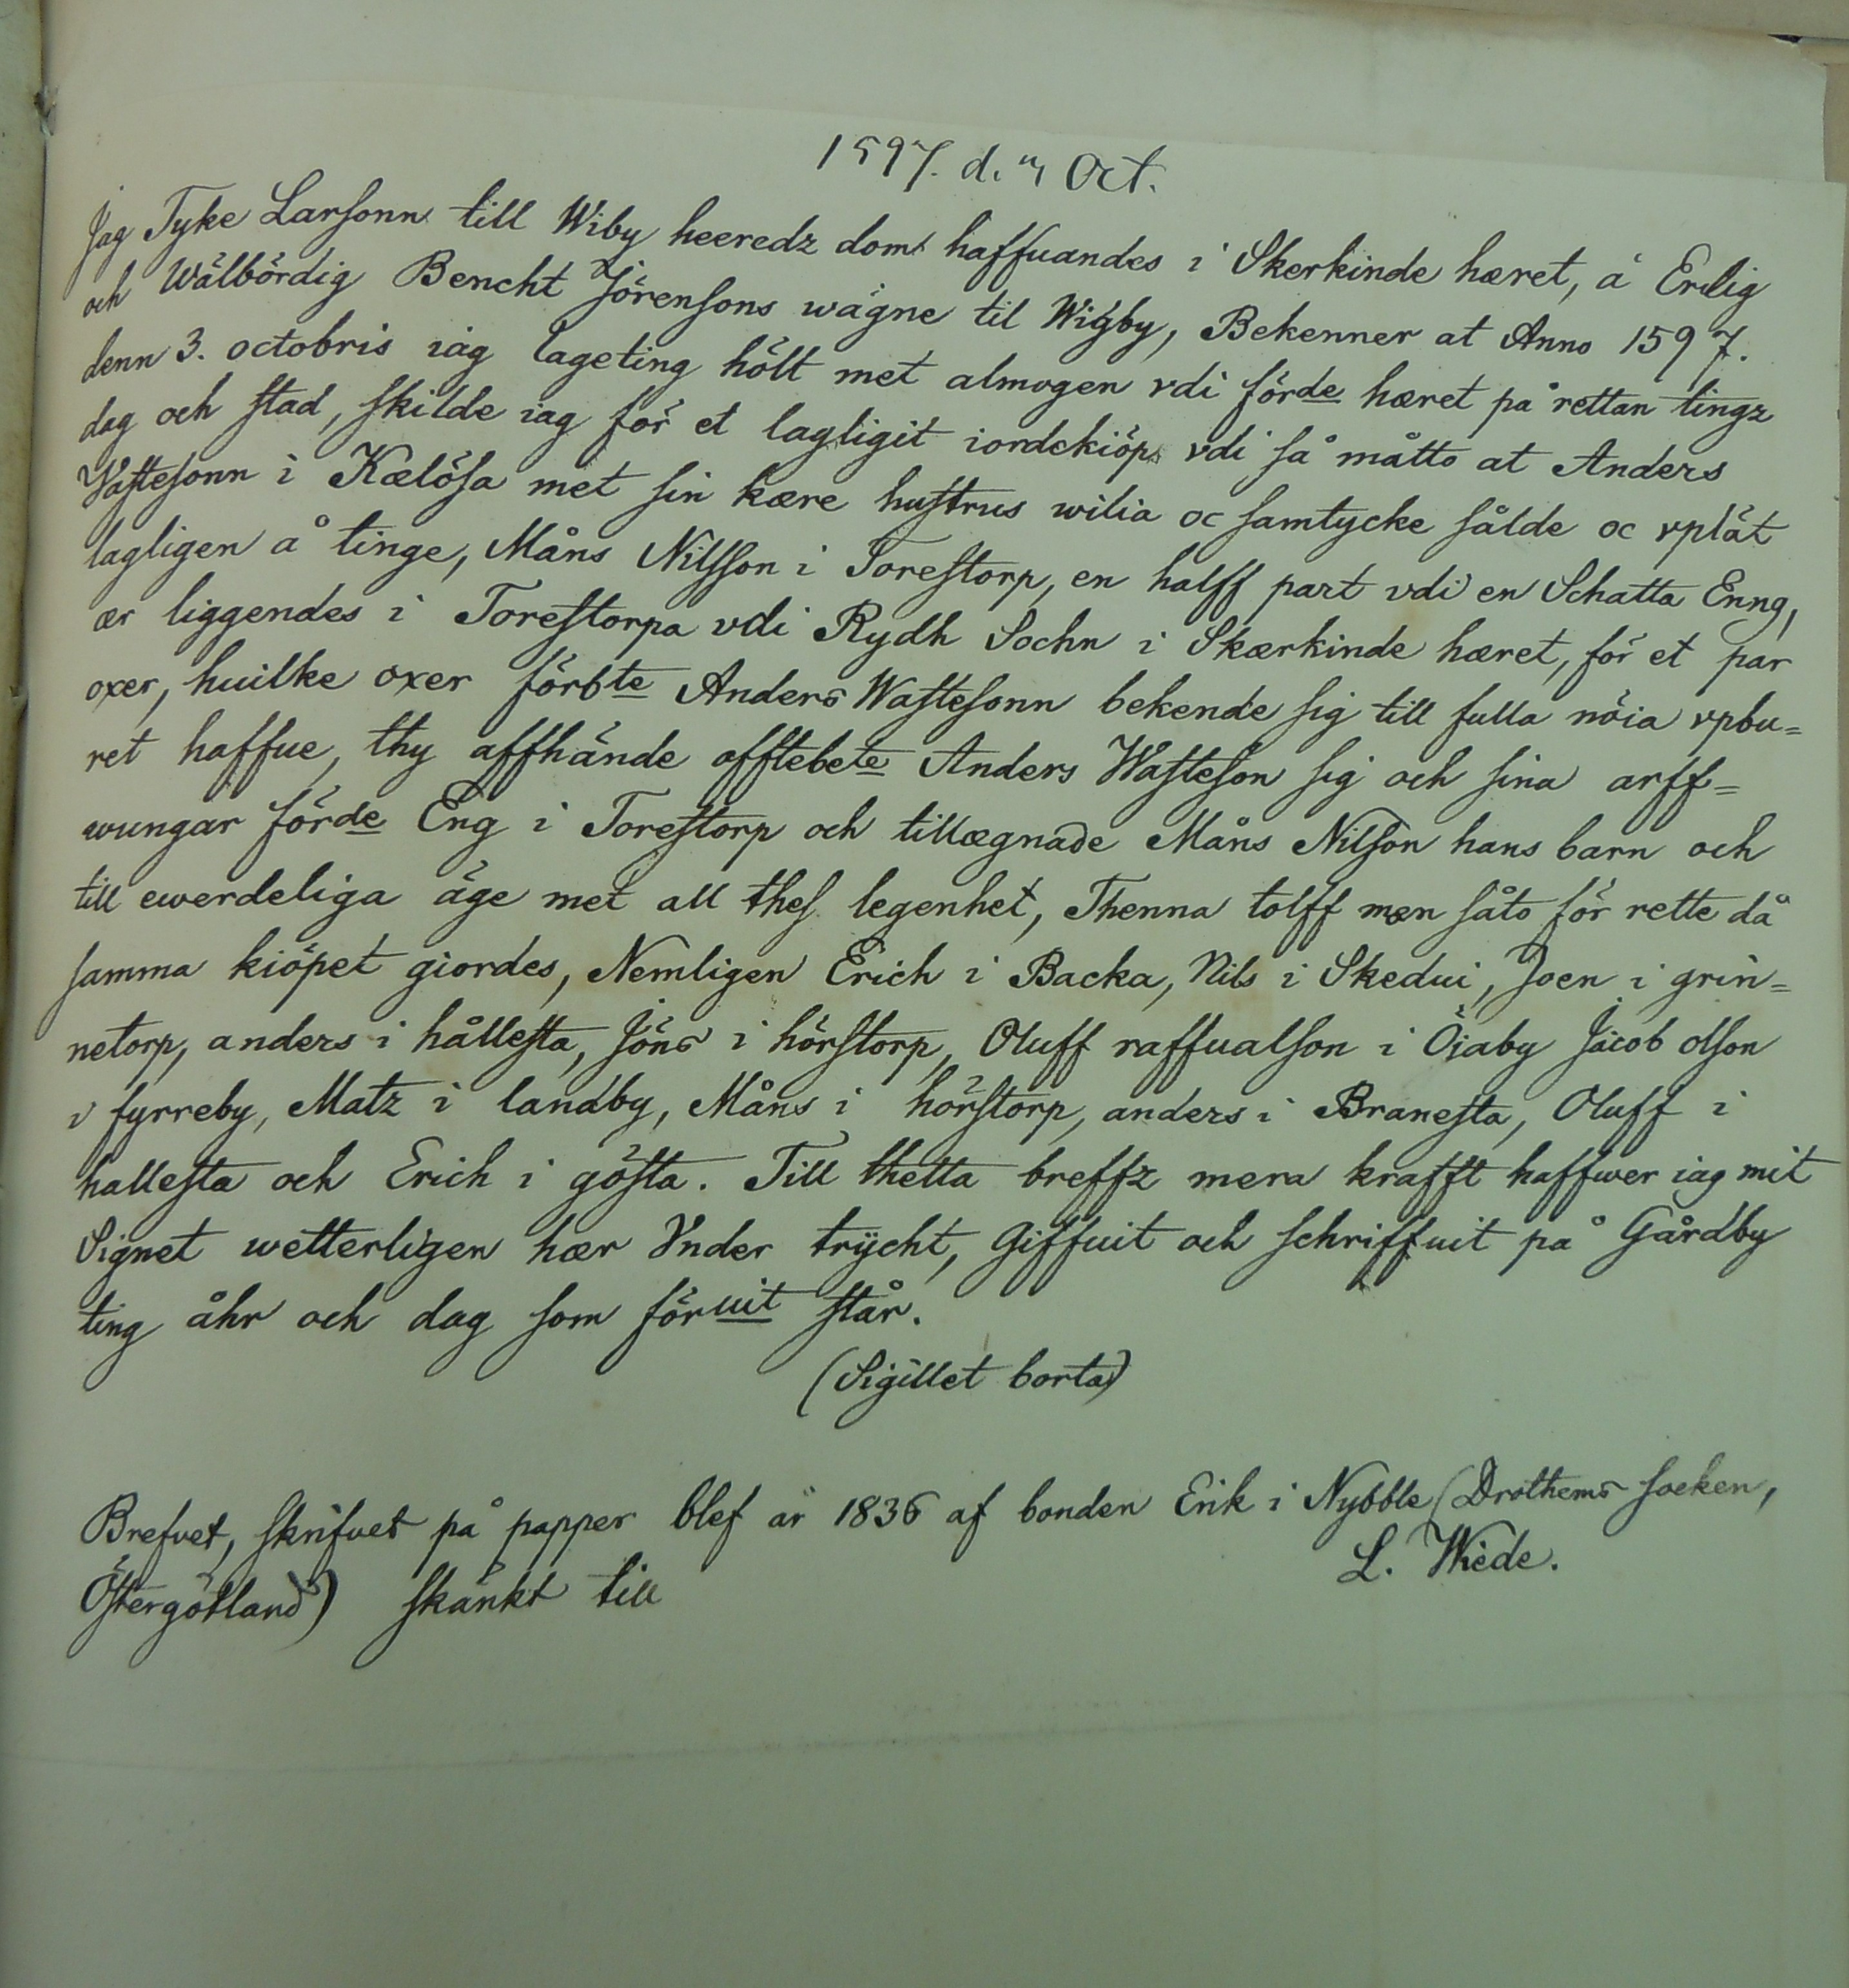 1597. d. 3 Oct.
Jag Tyke Larsonn till Wiby heeredz dom haffuandes i Skerkinde hæret, å Erlig
och Wälbördig Bencht Jörensons wägne til Wigby, Bekenner at Anno 1597.
denn 3. octobris iag lageting hölt met almogen vdi förde hæret på rettan tingz
dag och stad, skilde iag för et lagligit iordekiöp vdi så måtto at Anders
Vastesonn i Kælösa met sin kære hustrus wilia oc samtycke sålde oc vplät
lagligen å tinge, Måns Nilsson i Torestorp, en halff part vdi en Schatta Enng,
ær liggendes i Torestorpa vdi Rydh Sochn i Skærkinde hæret, för et par
oxer, huilke oxer förbte Anders Wastesonn bekende sig till fulla nöia vpbu=
ret haffue, thy affhände offtebete Anders Wasteson sig och sina arff=
wungar förde Eng i Torestorp och tillægnade Måns Nilson hans barn och
till ewerdeliga äge met all thes legenhet, Thenna tolff mæn såto för rette då
samma kiöpet giordes, Nemligen Erich i Backa, Nils i Skedui, Joen i grin=
netorp, anders i hållesta, Jöns i hörstorp, Oluff raffualson i Öiaby Jacob olson
i fyrreby, Matz i landby, Måns i hörstorp, anders i Branesta, Oluff i
hallesta och Erich i gösta. Till thetta breffz mera krafft haffwer iag mit
Signet wetterligen hær Vnder trÿcht, Giffuit och schriffuit på Gårdby
ting åhr och dag som föruit står.
(Sigillet borta)
Brefvet, skrifvet på papper blef år 1836 af bonden Erik i Nybble (Drothems socken,
Östergötland) skänkt till L. Wiede.